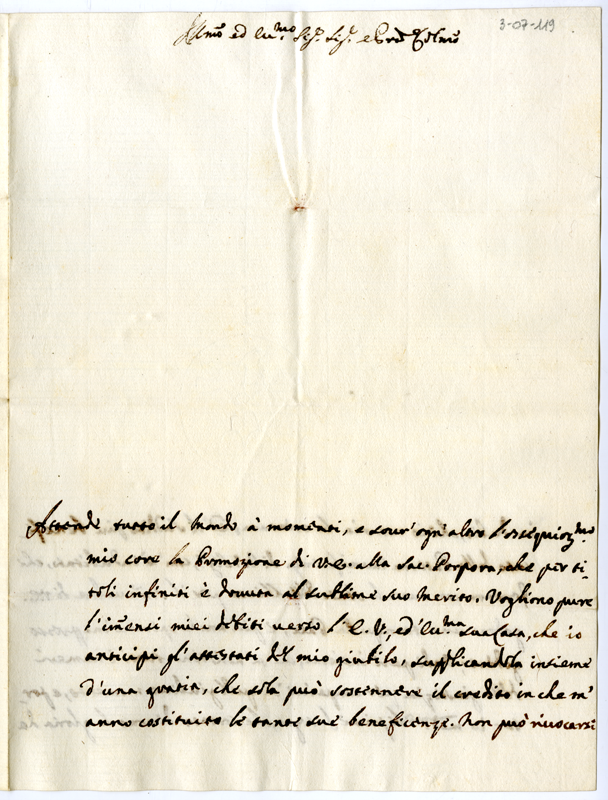 3-07-119
Ill.mo ed Ecc.mo Sig.r Sig.r e Pron Col.mo
Attende tutto il Mondo à momenti, e sour'ogn'altro l'ossequios.mo
mio core la Promozione di V.E. alla Sac. Porpora, che per ti-
toli infiniti è douuta al sublime suo Merito. Vogliono pure
l'imensi miei debiti uerso l'E.V., ed Ecc.ma sua Casa, che io
anticipi gl'attestati del mio giubilo, supplicandola insieme
d'una gratia, che sola può sostennere il credito in che m'
anno costituito le tante sue beneficenze. Non può riuocarsi